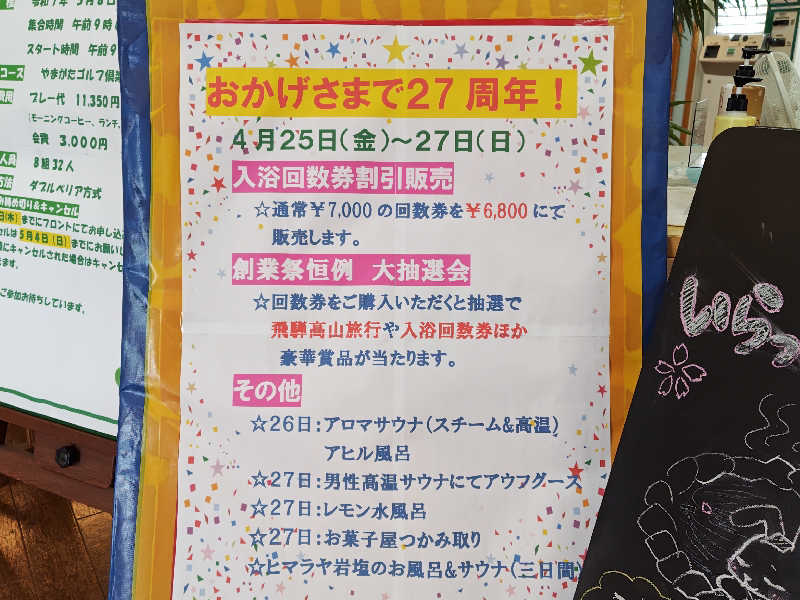 令和7年5月8日
集合時間 午前9時
スタート時間 午前9
コース やまがたゴルフ倶楽
プレー代 11,350円
(モーニングコーヒー、ランチ、
会費 3,000円
人員 8組32人
方法 ダブルペリア方式
締め切り&キャンセル
日(木)までにフロントにてお申し込
セルは5月4日(日)までにお願いし
にキャンセルされた場合はキャンセ
ます。
ご参加お待ちしています。
おかげさまで27周年!
4月25日(金)~27日(日)
入浴回数券割引販売
☆通常¥7,000の回数券を¥6,800にて
販売します。
創業祭恒例 大抽選会
☆回数券をご購入いただくと抽選で
飛騨高山旅行や入浴回数券ほか
豪華賞品が当たります。
その他
☆26日:アロマサウナ(スチーム&高温)
アヒル風呂
☆27日:男性高温サウナにてアウフグース
☆27日:レモン水風呂
☆27日:お菓子屋つかみ取り
☆ヒマラヤ岩塩のお風呂&サウナ(三日間)
いらっ